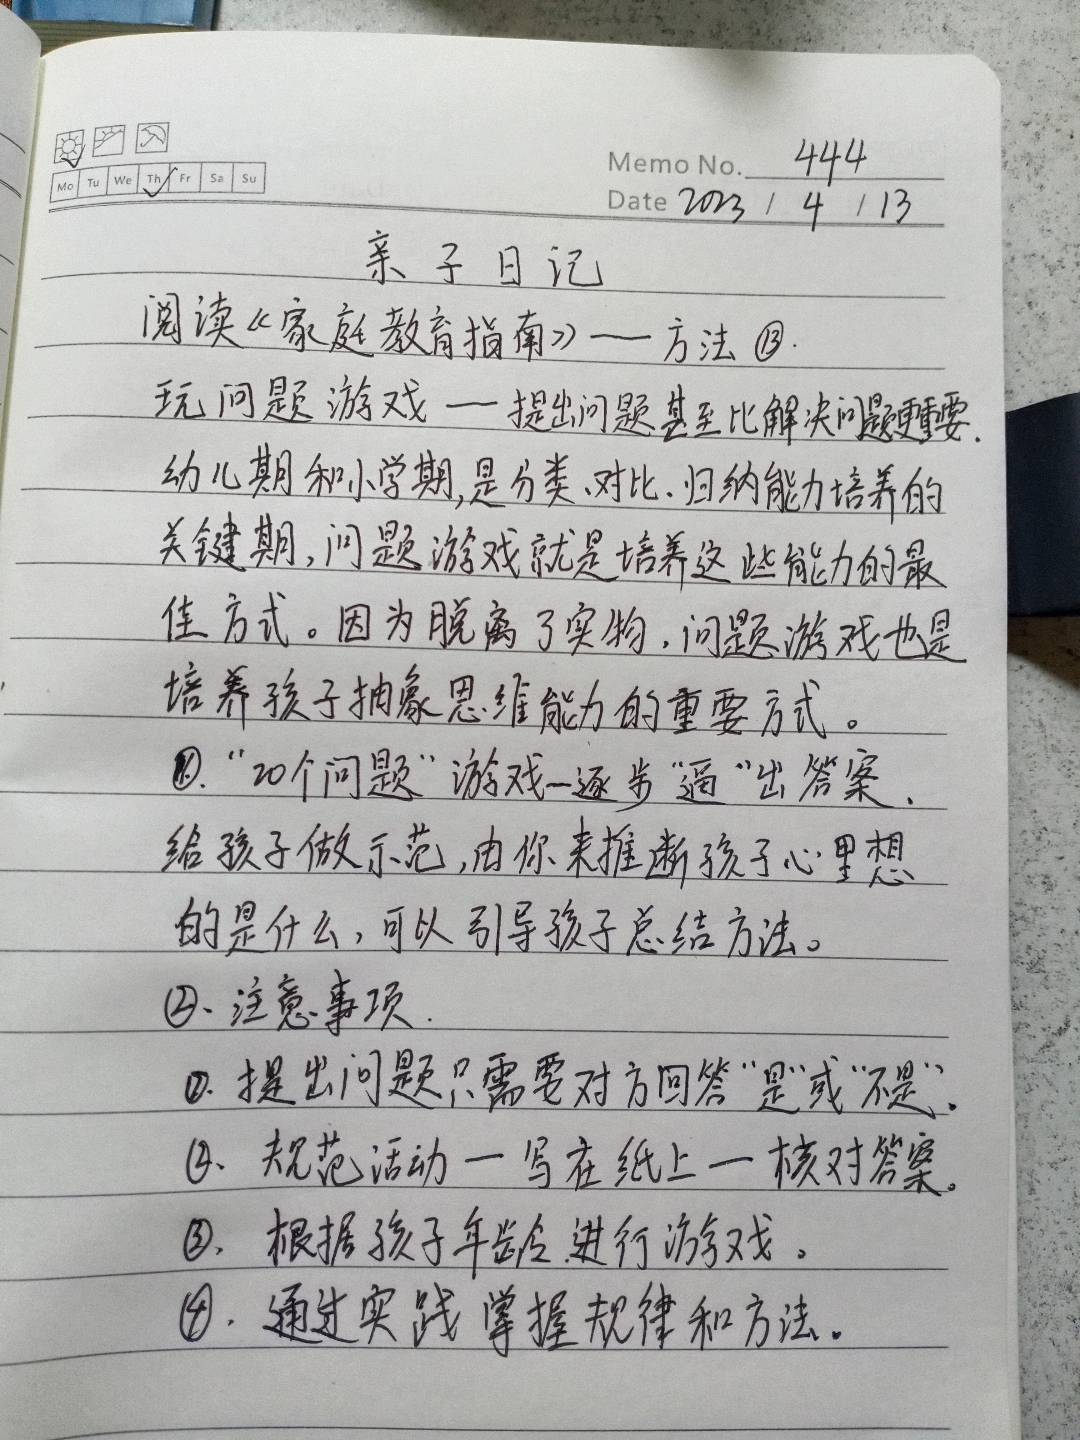 Memo No. 444
Mo Tu We Th Fr Sa Su
Date 2023 / 4 / 13
亲子日记
阅读《家庭教育指南》——方法⑬.
玩问题游戏——提出问题甚至比解决问题更重要.
幼儿期和小学期,是分类、对比、归纳能力培养的
关键期,问题游戏就是培养这些能力的最
佳方式。因为脱离了实物,问题游戏也是
培养孩子抽象思维能力的重要方式。
①.“20个问题”游戏—逐步“逼”出答案.
给孩子做示范,由你来推断孩子心里想
的是什么,可以引导孩子总结方法。
②、注意事项.
①.提出问题只需要对方回答“是”或“不是”.
②、规范活动—写在纸上—核对答案。
③、根据孩子年龄进行游戏。
④.通过实践掌握规律和方法。